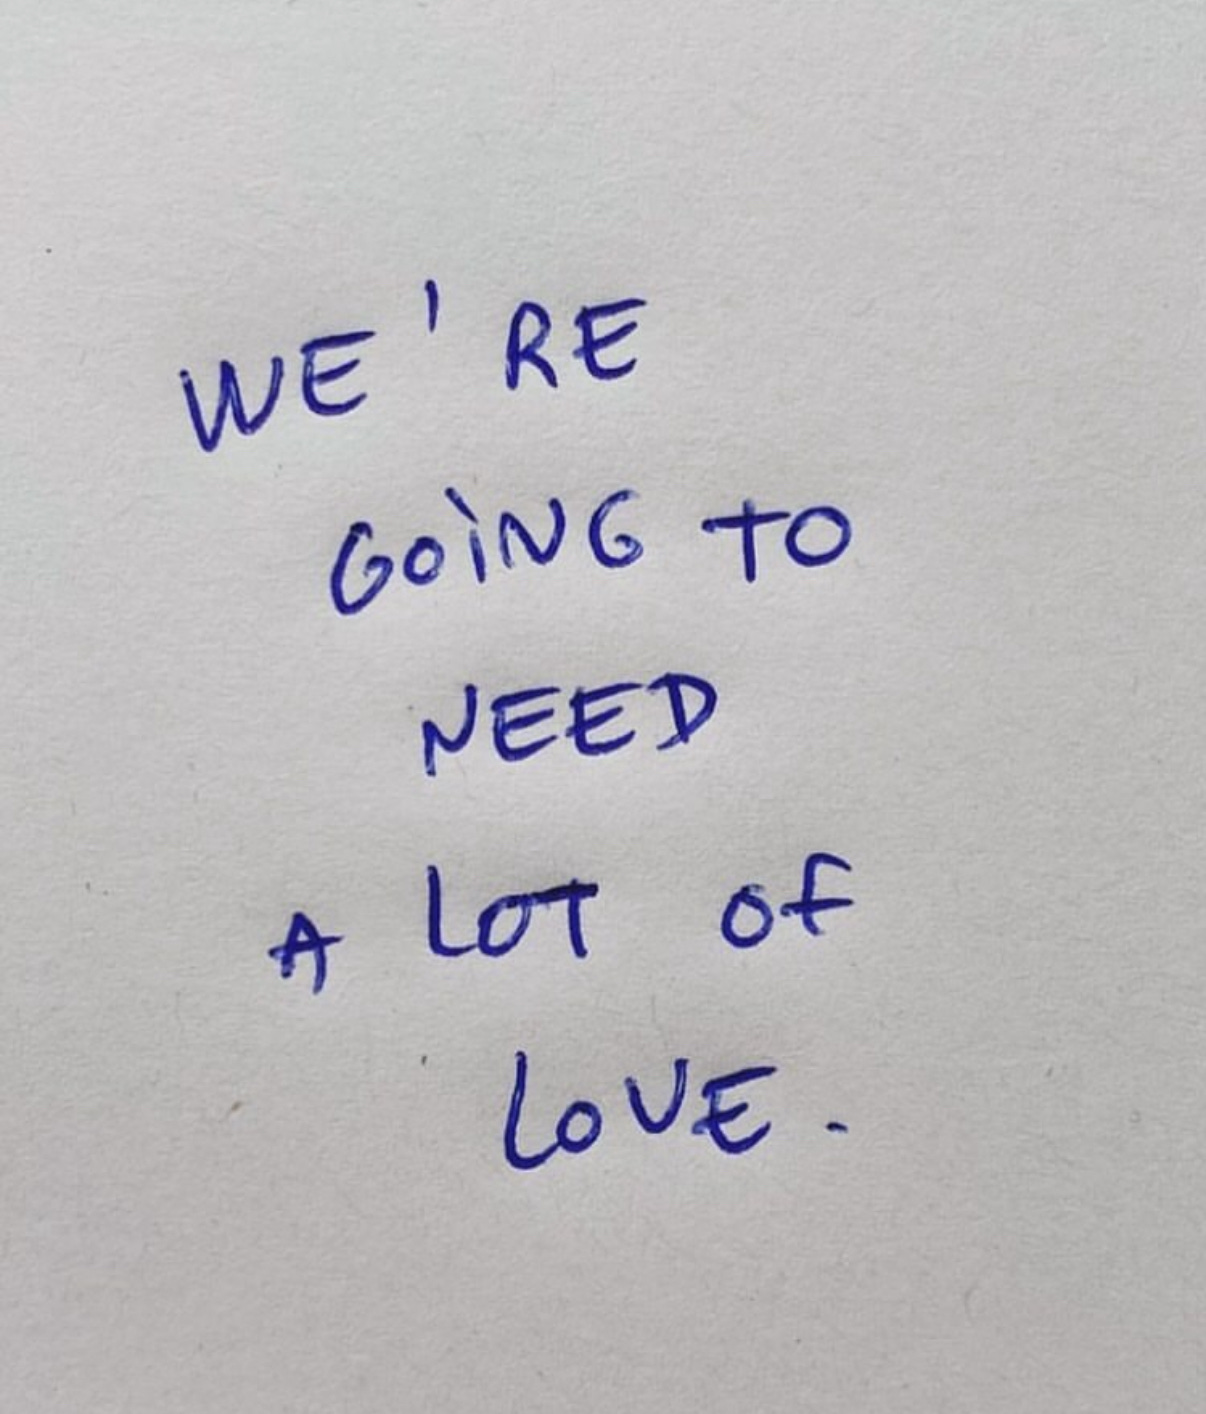 WE'RE
GOING TO
NEED
A LOT OF
LOVE.